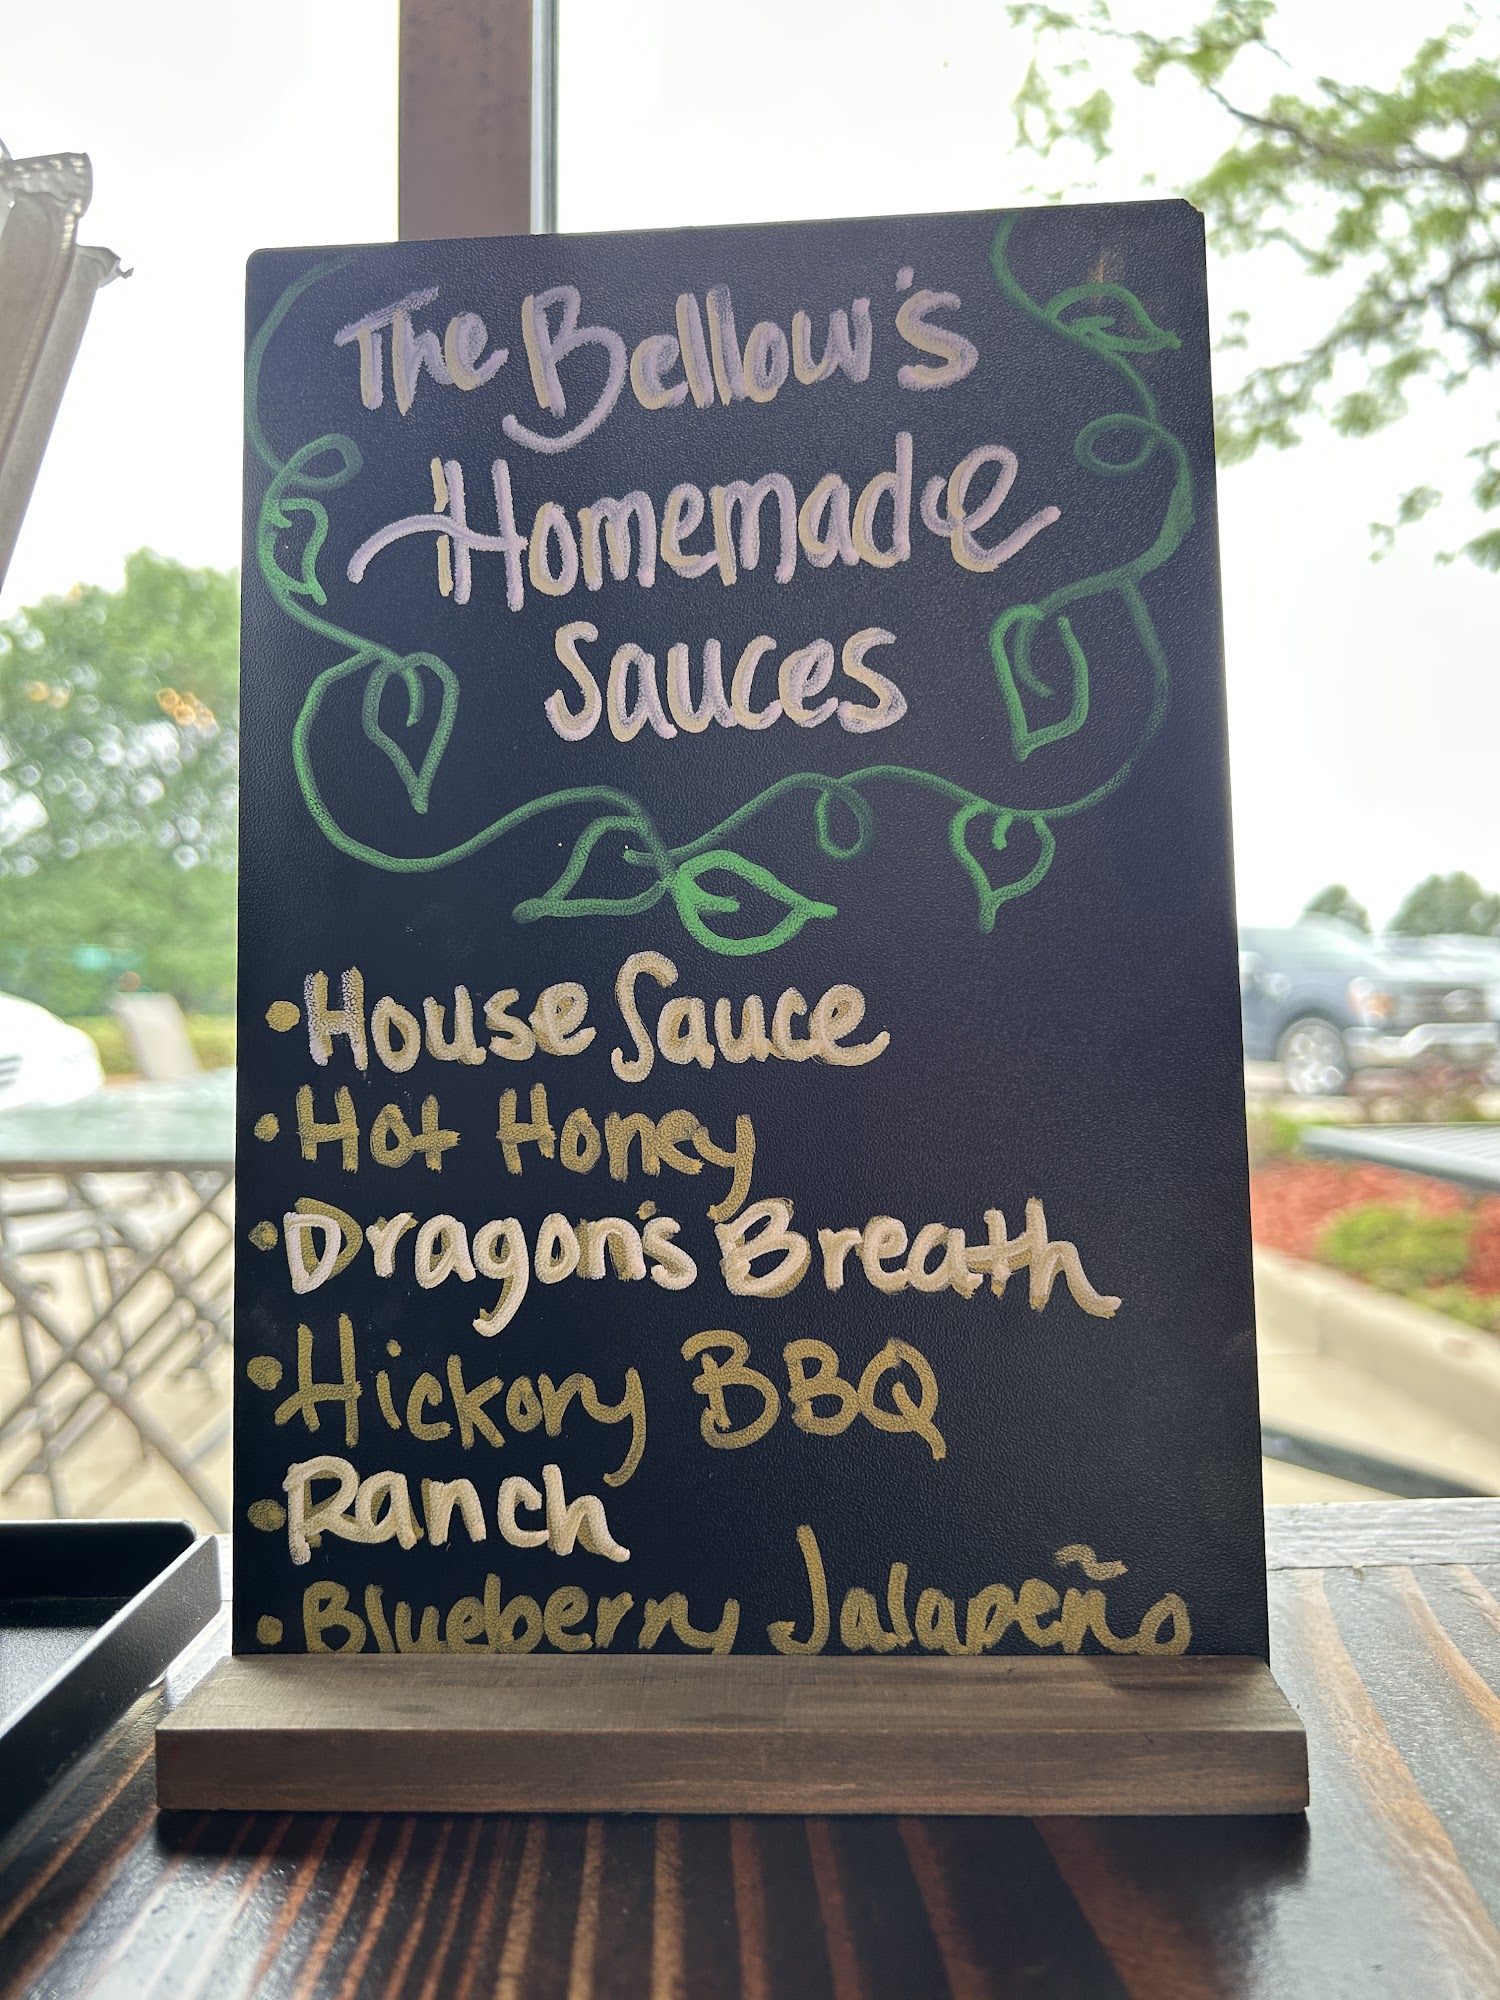 The Bellow's
Homemade
Sauces
• House Sauce
• Hot Honey
• Dragon's Breath
• Hickory BBQ
• Ranch
• Blueberry Jalapeño